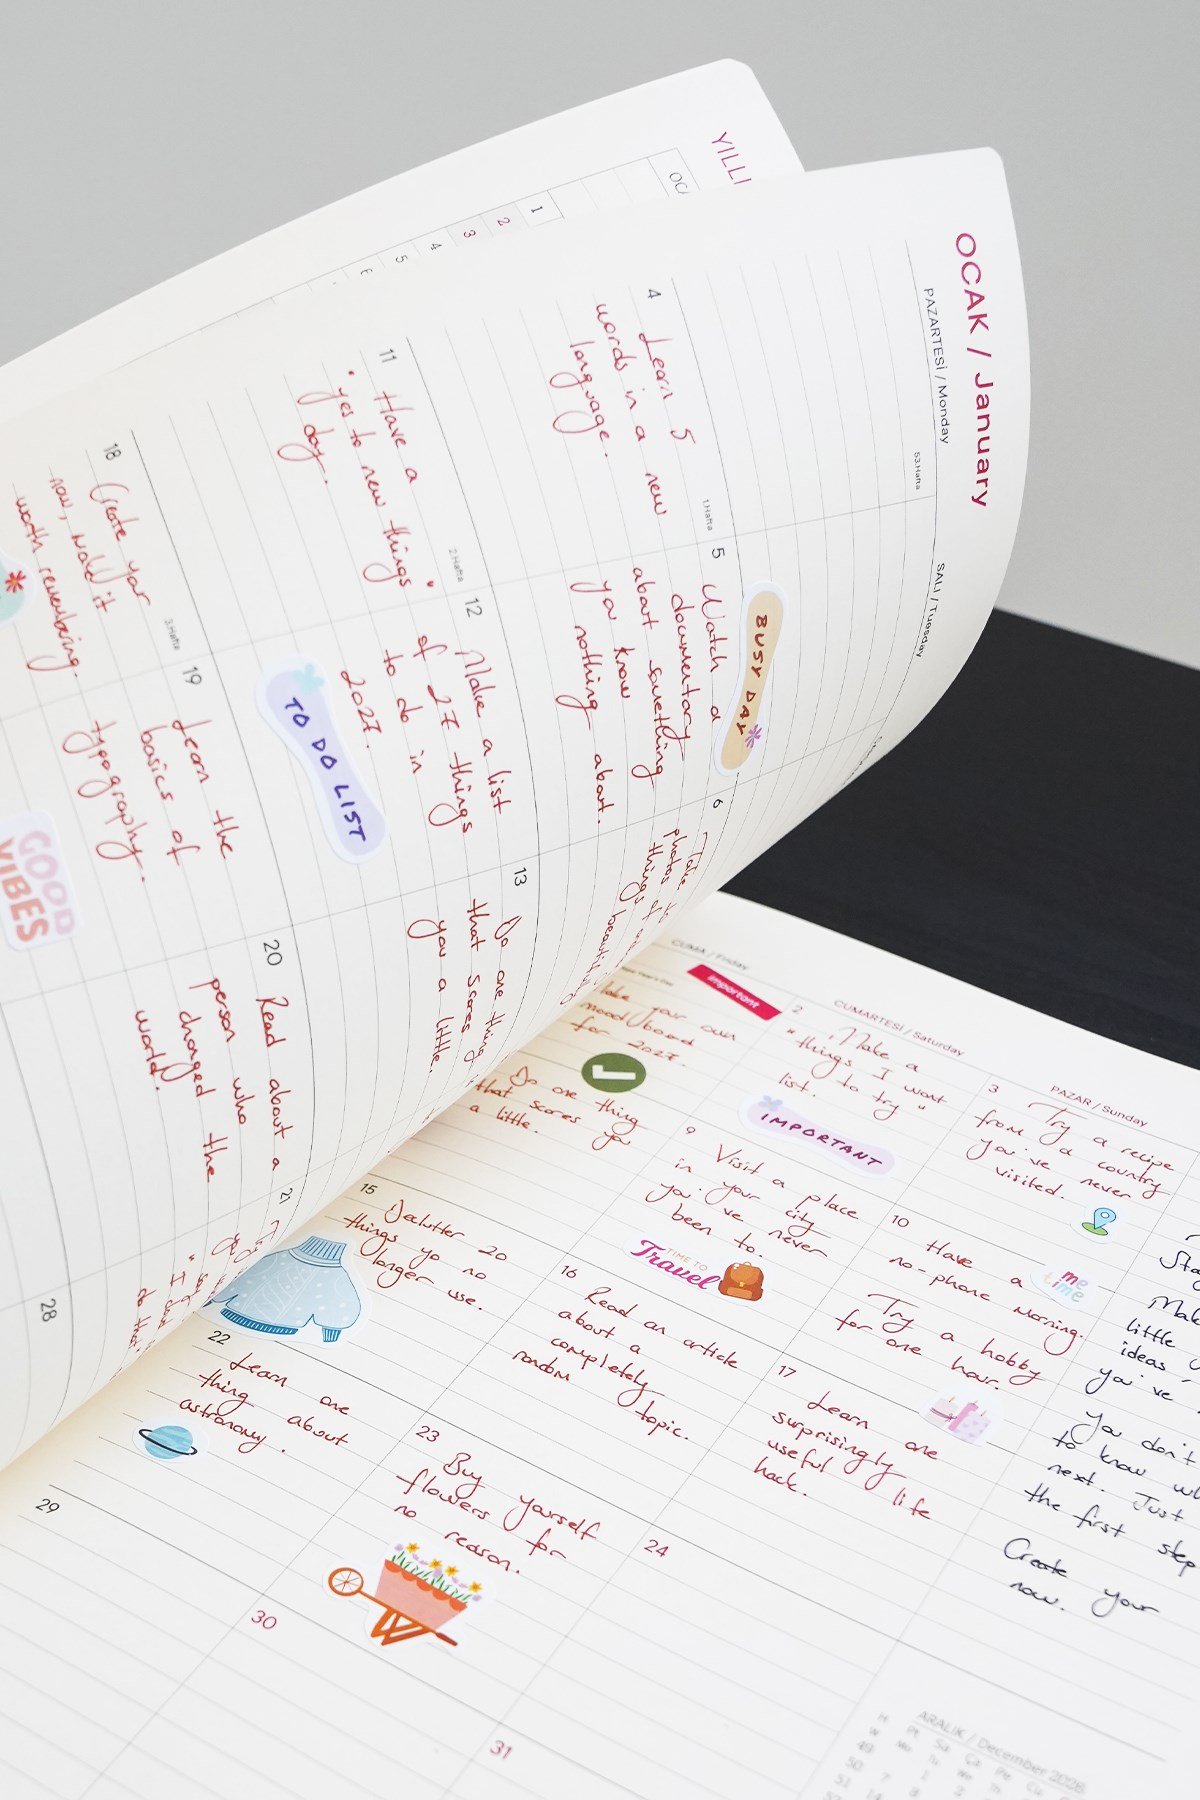 YILLI
1
2
3
4
5
OCAK / January
PAZARTESİ / Monday
SALI / Tuesday
53.Hafta
4
Learn 5
words in a new
language.
1.Hafta
5
Watch a
documentary
about something
you know
nothing about.
BUSY DAY
6
Take
photos of
things
beautiful
11
Have a
"yes to new things"
day.
2.Hafta
12
Make a list
of 27 things
to do in
2027.
TO DO LIST
13
Do one thing
that scares
you a little.
18
Create your
now, make it
worth remembering.
3.Hafta
19
Learn the
basics of
typography.
GOOD
VIBES
20
Read about a
person who
changed the
world.
21
28
CUMA / Friday
CUMARTESİ / Saturday
PAZAR / Sunday
important
Make your own
mood board
for 2027.
2
Make a
"things I want
to try"
list.
IMPORTANT
3
Try a recipe
from a country
you've never
visited.
Do one thing
that scares you
a little.
9
Visit a place
in your city
you've never
been to.
TIME TO
Travel
10
Have a
no-phone morning.
me
time
Try a hobby
for one hour.
15
Declutter 20
things yo no
longer use.
16
Read an article
about a
completely
random
topic.
17
Learn one
surprisingly
useful life
hack.
22
Learn one
thing about
astronomy.
23
Buy yourself
flowers for
no reason.
24
29
30
31
little
ideas
you've
You don't
to know
next. Just
the first step
Create your
now.
ARALIK / December 2026